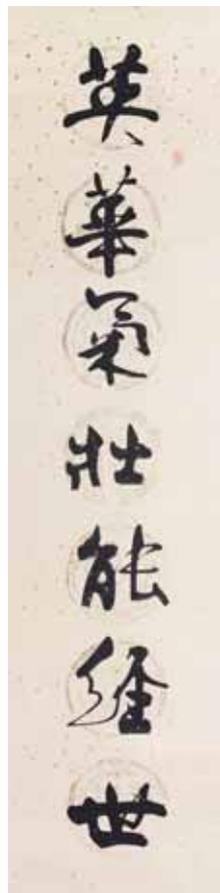 英華氣壯能經世